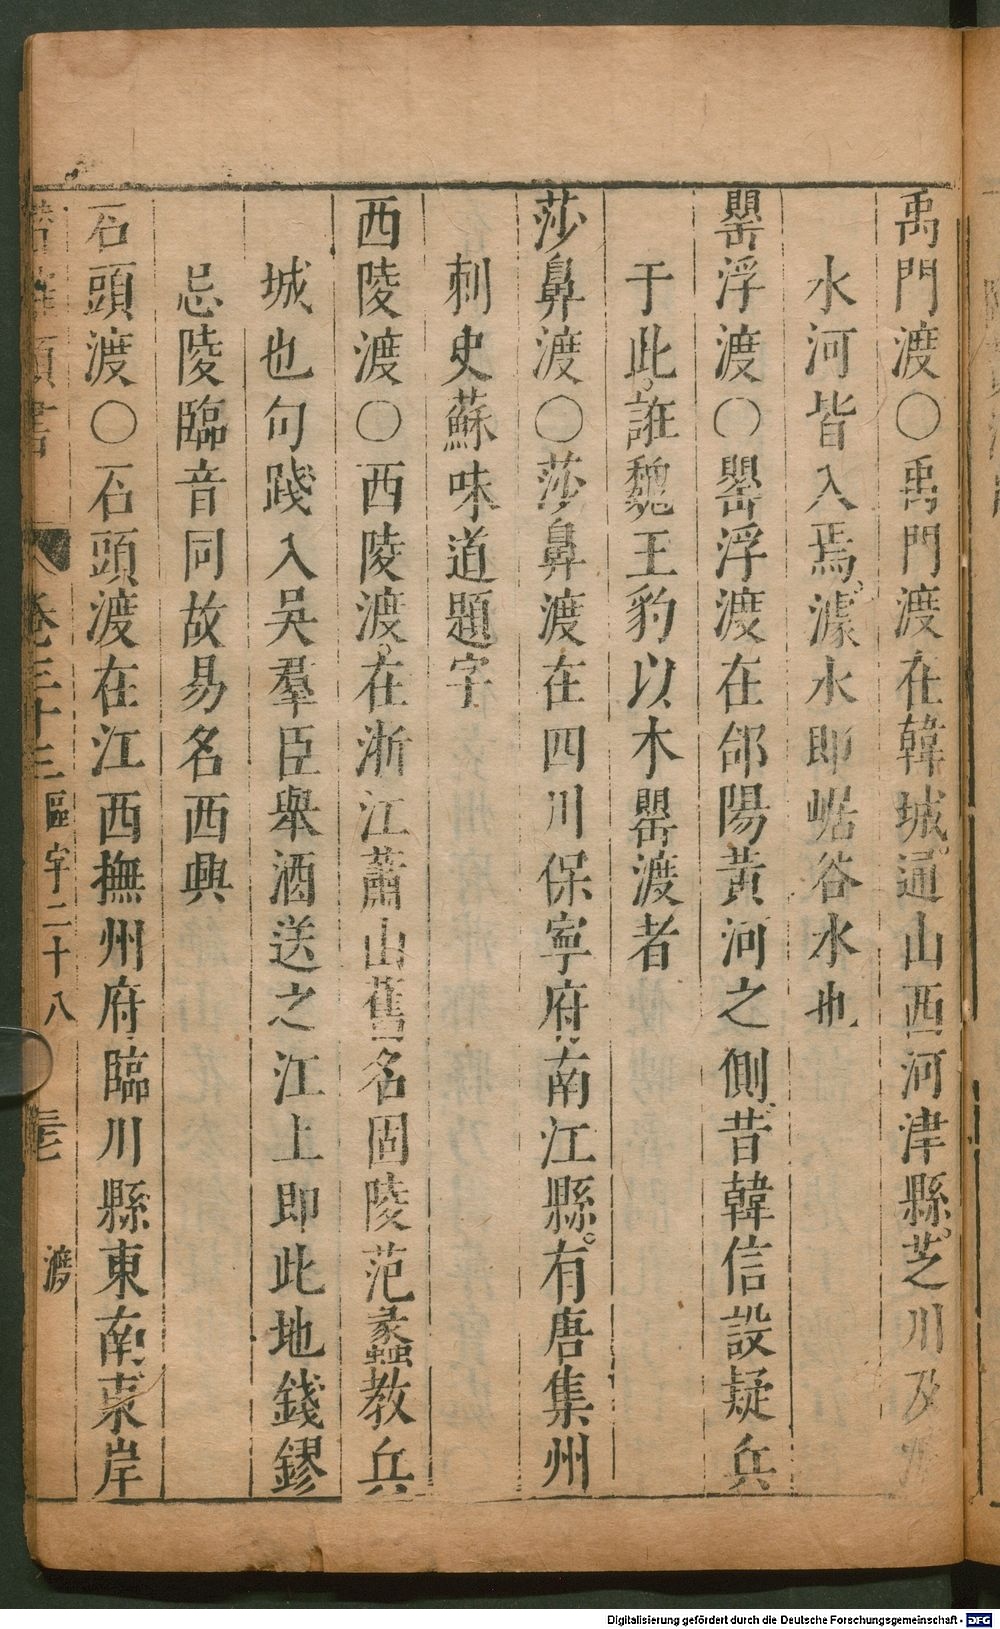 禹門渡○禹門渡在韓城通山西河津縣芝川及
水河皆入焉濝水即崌谷水也
罌浮渡○罌浮渡在郃陽黃河之側昔韓信設疑兵
于此誑魏王豹以木罌渡者
莎鼻渡○莎鼻渡在四川保寧府南江縣有唐集州
刺史蘇味道題字
西陵渡○西陵渡在浙江蕭山舊名固陵范蠡教兵
城也句踐入吳羣臣舉酒送之江上即此地錢鏐
忌陵臨音同故易名西興
石頭渡○石頭渡在江西撫州府臨川縣東南東岸
類書 卷三十三 區宇二十八 渡
Digitalisierung gefördert durch die Deutsche Forschungsgemeinschaft - DFG